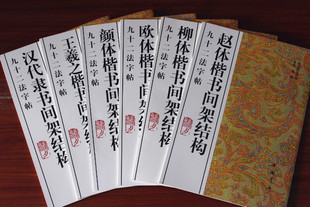 赵体楷书间架结构
九十二法字帖
柳体楷书间架结构
九十二法字帖
欧体楷书间架结构
九十二法字帖
颜体楷书间架结构
九十二法字帖
王羲之楷书间架结构
九十二法字帖
汉代隶书间架结构
九十二法字帖